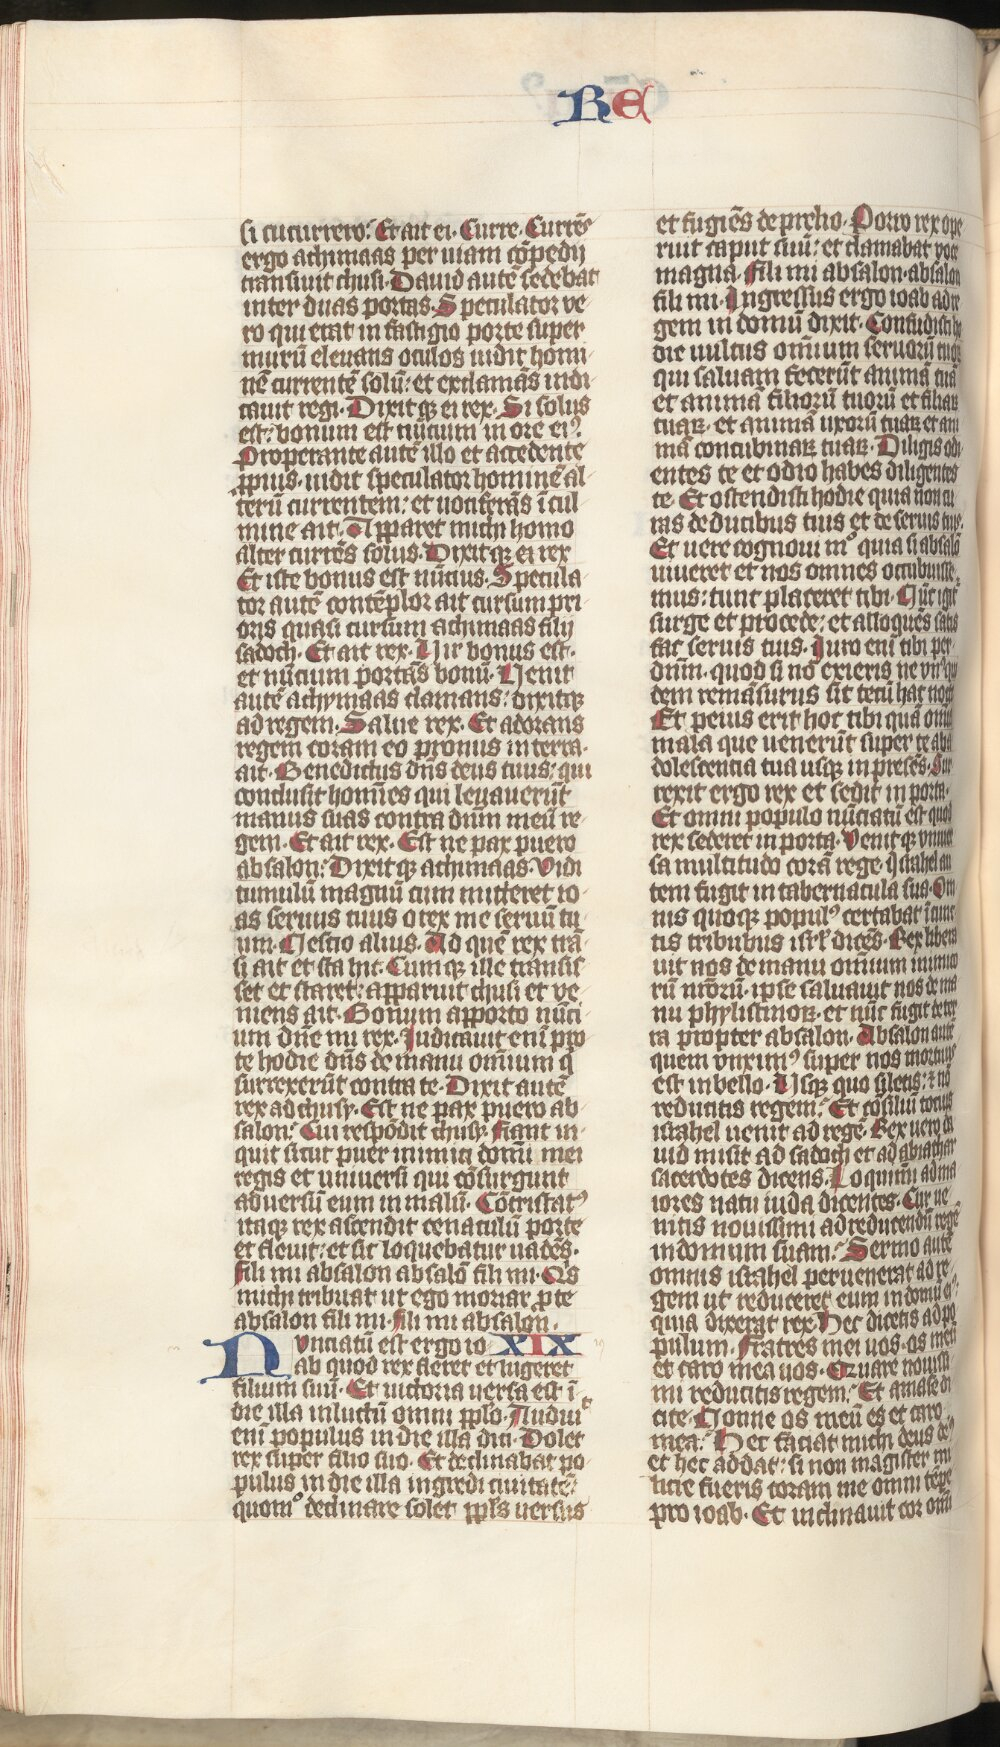 RE
si cucurrero? Et ait ei. Curre. Currēs
ergo achimaas per uiam cōpedij
transiuit chusi. Dauid autē sedebat
inter duas portas. Speculator ve
ro qui erat in fastigio porte super
murū eleuans oculos uidit homi
nē currentē solū: et exclamās indi
cauit regi. Dixitqꝫ ei rex. Si solus
est: bonum est nūcium in ore eiꝰ.
Properante autē illo et accedente
ꝓpius. uidit speculator hominē al
terū currentem: et uociferās ī cul
mine ait. Apparet michi homo
alter currēs solus. Dixitqꝫ ei rex
Et iste bonus est nūcius. Specula
tor autē contēplor ait cursum pri
oris quasi cursum achimaas filij
sadoch. Et ait rex. Uir bonus est.
et nūcium portās bonū. Uenit
autē achymaas clamans: dixitqꝫ
ad regem. Salue rex. Et adorans
regem coram eo pronus in terra.
ait. Benedictus dn̄s deus tuus: qui
conclusit homīes qui leuauerūt
manus suas contra dnm̄ meū re
gem. Et ait rex. Est ne pax puero
absalon? Dixitqꝫ achimaas. Vidi
tumulū magnū cum mitteret io
as seruus tuus o rex me seruū tu
um. Nescio aliud. Ad quē rex trā
si ait et sta hic. Cumqꝫ ille transis
set et staret: apparuit chusi et ve
niens ait. Bonum apporto nūci
um dn̄e mi rex. Iudicauit enī pro
te hodie dn̄s de manu omīum q̄
surrexerūt contra te. Dixit autē
rex ad chusy. Est ne pax puero ab
salon? Cui respōdit chusy. Fiant in
quit sicut puer inimici domī mei
regis et uniuersi qui cōsurgunt
aduersū eum in malū. Cōtristatꝰ
itaqꝫ rex ascendit cenaculū porte
et fleuit: et sic loquebatur uadēs.
Fili mi absalon absalō fili mi. Q̄s
michi tribuat ut ego moriar ꝓ te
absalon fili mi. fili mi absalon.
Nunciatū est ergo io XIX
ab quod rex fleret et lugeret
filium suū. Et uictoria uersa est ī
die illa in luctū omni ppl̄o. Audiuit
enī populus in die illa dici. Dolet
rex super filio suo. Et declinabat po
pulus in die illa ingredi ciuitatē:
quomº declinare solet ppl̄s uersus
et fugiēs de prelio. Porro rex ope
ruit caput suū: et clamabat voce
magna. Fili mi absalon. absalon
fili mi. Ingressus ergo ioab ad re
gem in domū dixit. Confudisti ho
die uultus omīum seruorū tuorꝫ
qui saluam fecerūt animā tuā
et animā filiorū tuorū et filiarꝫ
tuarꝫ. et animā uxorū tuarꝫ et ani
mā concubinarꝫ tuarꝫ. Diligis odi
entes te et odio habes diligentes
te. Et ostendisti hodie quia non cu
ras de ducibus tuis et de seruis tuis.
Et uere cognoui mº quia si absalō
uiueret et nos omnes occubuisse
mus: tunc placeret tibi. Nūc igit̄
surge et procede: et alloquēs satis
fac seruis tuis. Iuro enī tibi per
dnm̄. quod si nō exieris ne vnꝰ qui
dem remāsurus sit tecū hac nocte
Et peius erit hoc tibi quā omīa
mala que uenerūt super te ab a
dolescentia tua usqꝫ in presēs. Sur
rexit ergo rex et sedit in porta.
Et omni populo nūciatū est quod
rex sederet in porta. Venitqꝫ vniuer
sa multitudo corā rege. israhel au
tem fugit in tabernacula sua. Om
nis quoqꝫ populꝰ certabat ī cunc
tis tribubus isrl̄. dicēs. Rex libera
uit nos de manu omīum inimico
rū nr̄orū. ipse saluauit nos de ma
nu phylistinorꝫ. et nūc fugit de ter
ra propter absalon. Absalon autē
quem vnximꝰ super nos mortuus
est in bello. Usqꝫ quo siletis: ⁊ nō
reducitis regem? Et cōsiliū tocius
israhel uenit ad regē. Rex uero da
uid misit ad sadoch et ad abiathar
sacerdotes dicens. Loquimī ad ma
iores natu iuda dicentes. Cur ue
nitis nouissimi ad reducendū regē
in domum suam? Sermo autē
omnis israhel peruenerat ad re
gem ut reduceret eum in domū eiꝰ.
quia dixerat rex. Hec dicetis ad po
pulum. Fratres mei uos. os meū
et caro mea uos. Quare nouissi
mi reducitis regem? Et amase di
cite. Nonne os meū es et caro
mea? Hec faciat michi deus
et hec addat: si non magister mi
licie fueris coram me omni tēpe
pro ioab. Et inclinauit cor omīū